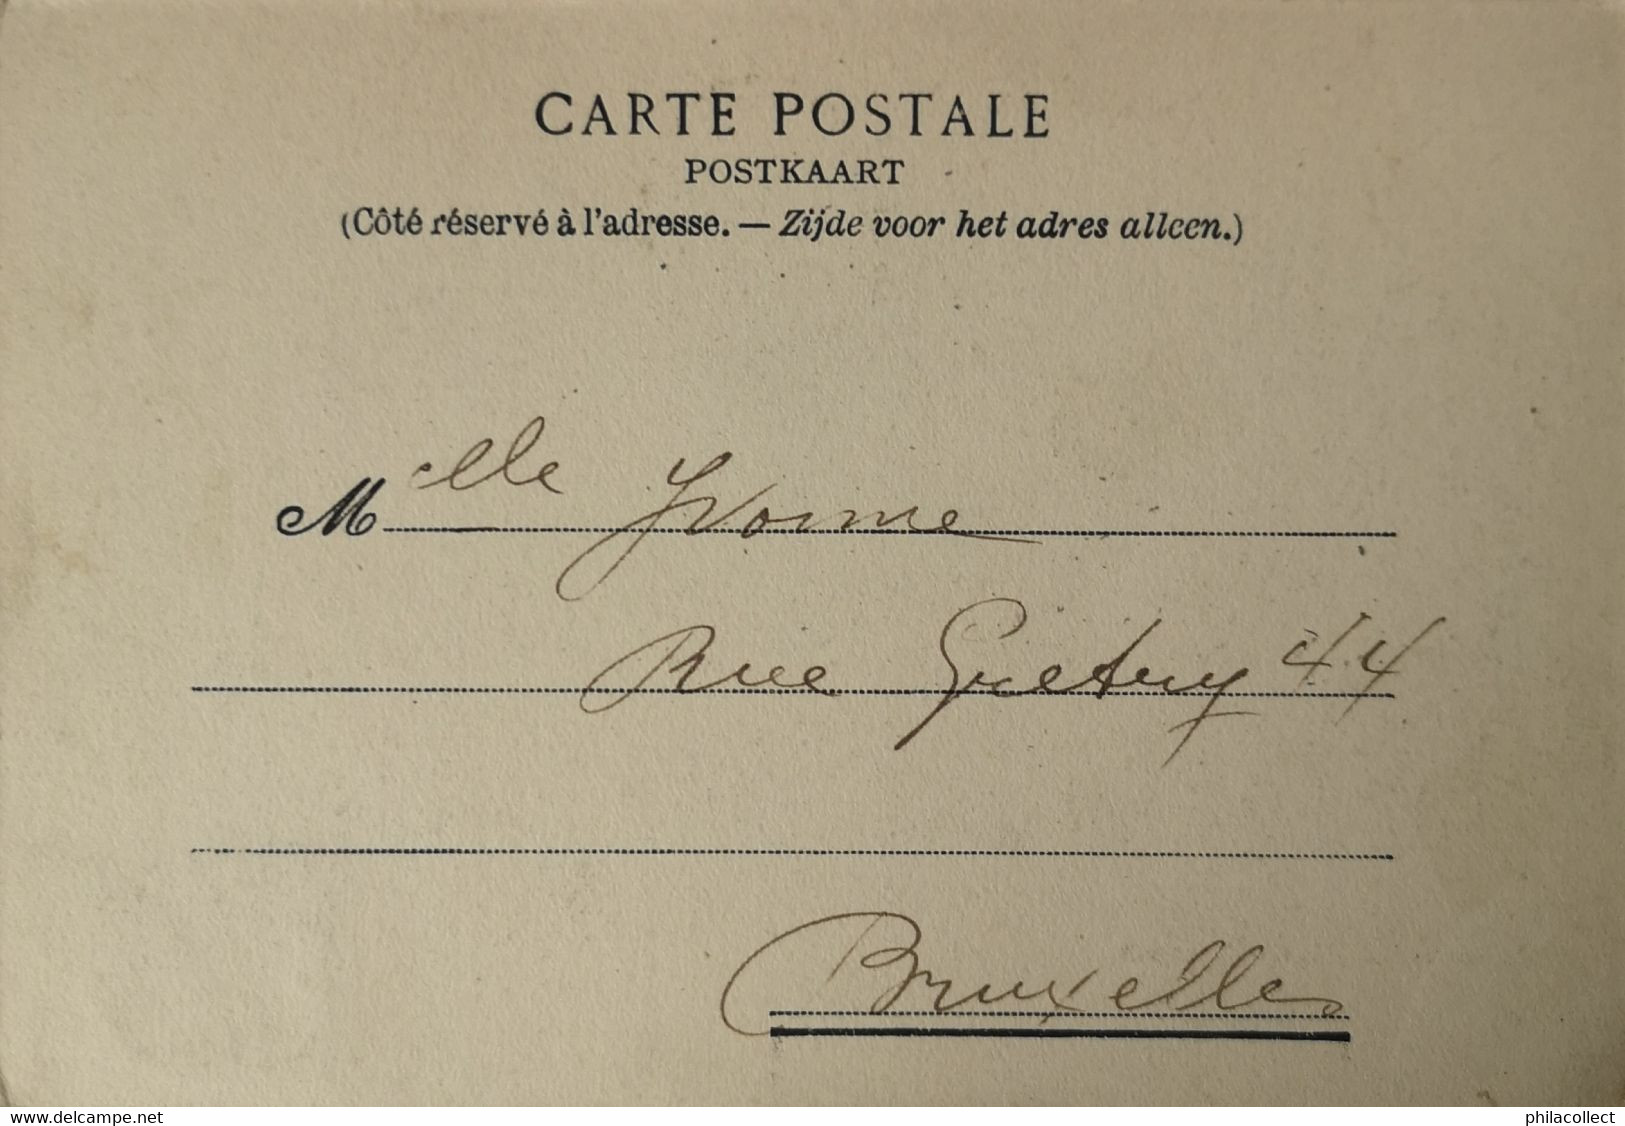 CARTE POSTALE
POSTKAART
(Côté réservé à l'adresse. — Zijde voor het adres alleen.)
Melle Yvonne
Rue Grétry 44
Bruxelles
www.delcampe.net
philacollect